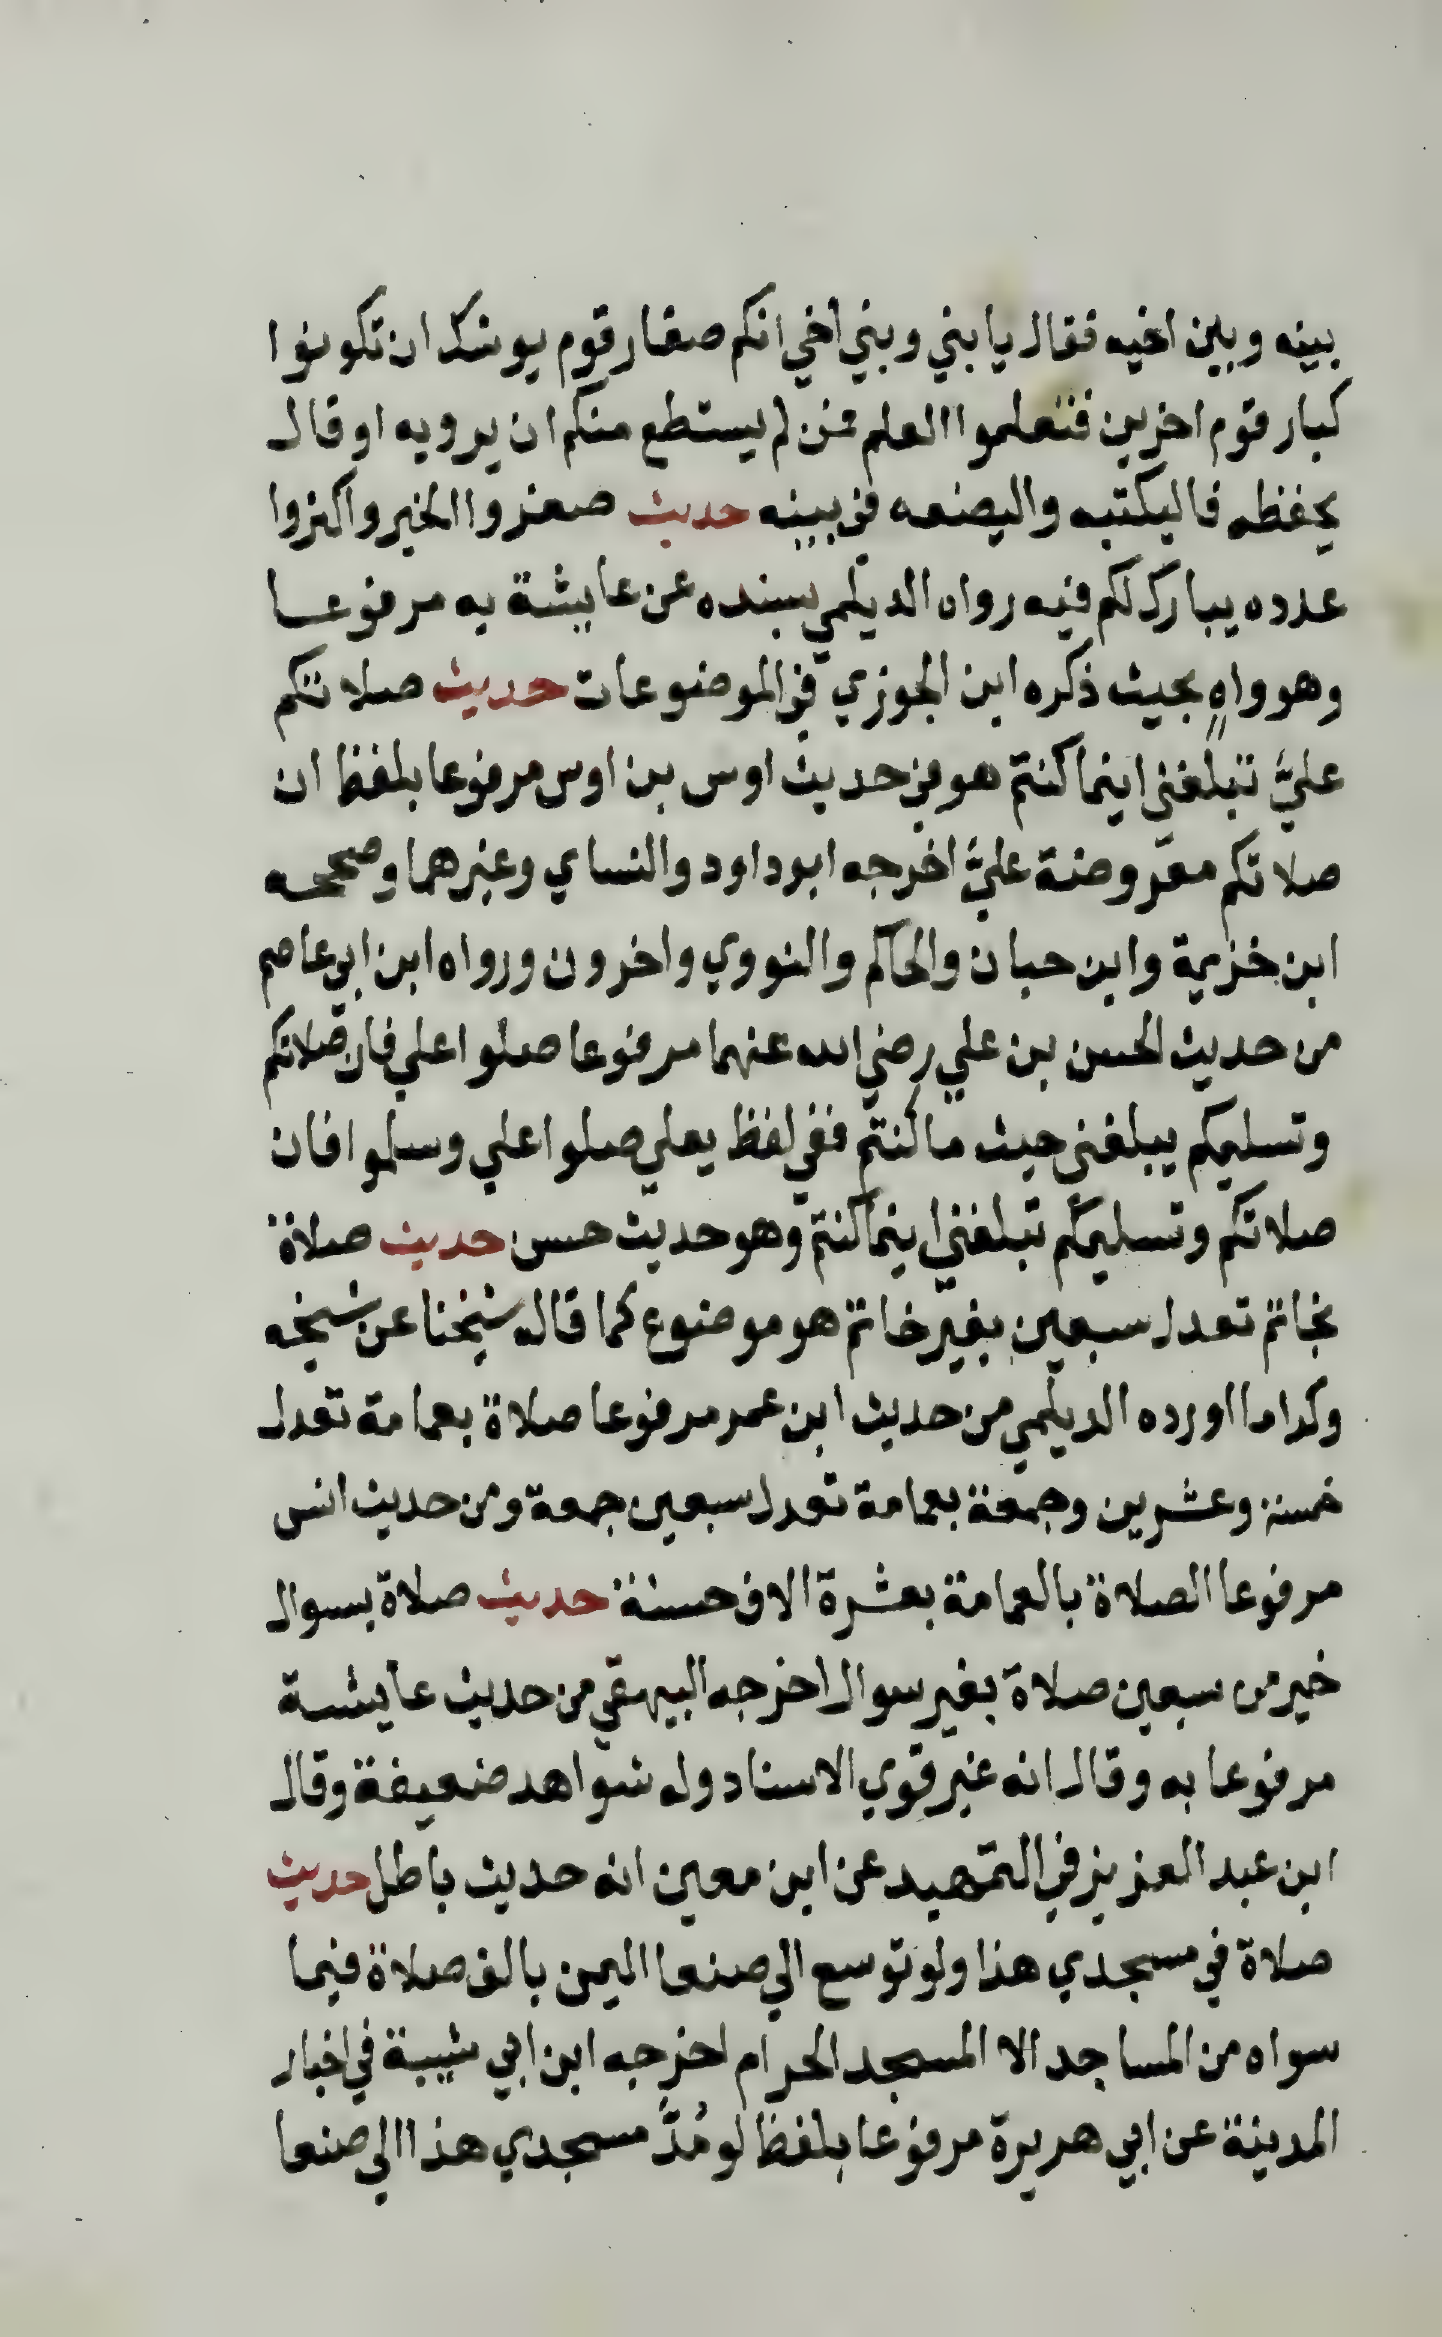 بينه وبين اخيه فقال يا بني وبني اخي انكم صغار قوم يوشك ان تكونوا
كبار قوم اخرين فتعلموا العلم فمن لم يستطع منكم ان يرويه او قال
يحفظه فاليكتبه واليضعه في بيته حديث صغروا الخبز واكثروا
عدده يبارك لكم فيه رواه الديلمي بسنده عن عايشة به مرفوعا
وهو واهٍ بحيث ذكره ابن الجوزي في الموضوعات حديث صلاتكم
عليَّ تبلغني اينما كنتم هو في حديث اوس بن اوس مرفوعا بلفظ ان
صلاتكم معروضة عليَّ اخرجه ابو داود والنساي وغيرهما وصححه
ابن خزيمة وابن حبان والحاكم والنووي واخرون ورواه ابن ابي عاصم
من حديث الحسن بن علي رضي الله عنهما مرفوعا صلوا علي فان صلاتكم
وتسليمكم يبلغني حيث ما كنتم ففي لفظ يعلي صلوا علي وسلموا فان
صلاتكم وتسليمكم تبلغني اينما كنتم وهو حديث حسن حديث صلاة
بخاتم تعدل سبعين بغير خاتم هو موضوع كما قاله شيخنا عن شيخه
وكذا ما اورده الديلمي من حديث ابن عمر مرفوعا صلاة بعمامة تعدل
خمسة وعشرين وجمعة بعمامة تعدل سبعين جمعة ومن حديث انس
مرفوعا الصلاة بالعمامة بعشرة الاف حسنة حديث صلاة بسواك
خير من سبعين صلاة بغير سواك اخرجه البيهقي من حديث عايشة
مرفوعا به وقال انه غير قوي الاسناد وله شواهد ضعيفة وقال
ابن عبد العزيز في التمهيد عن ابن معين انه حديث باطل حديث
صلاة في مسجدي هذا ولو توسع الي صنعا اليمن بالف صلاة فيما
سواه من المساجد الا المسجد الحرام اخرجه ابن ابي شيبة في اخبار
المدينة عن ابي هريرة مرفوعا بلفظ لو مُدَّ مسجدي هذا الي صنعا